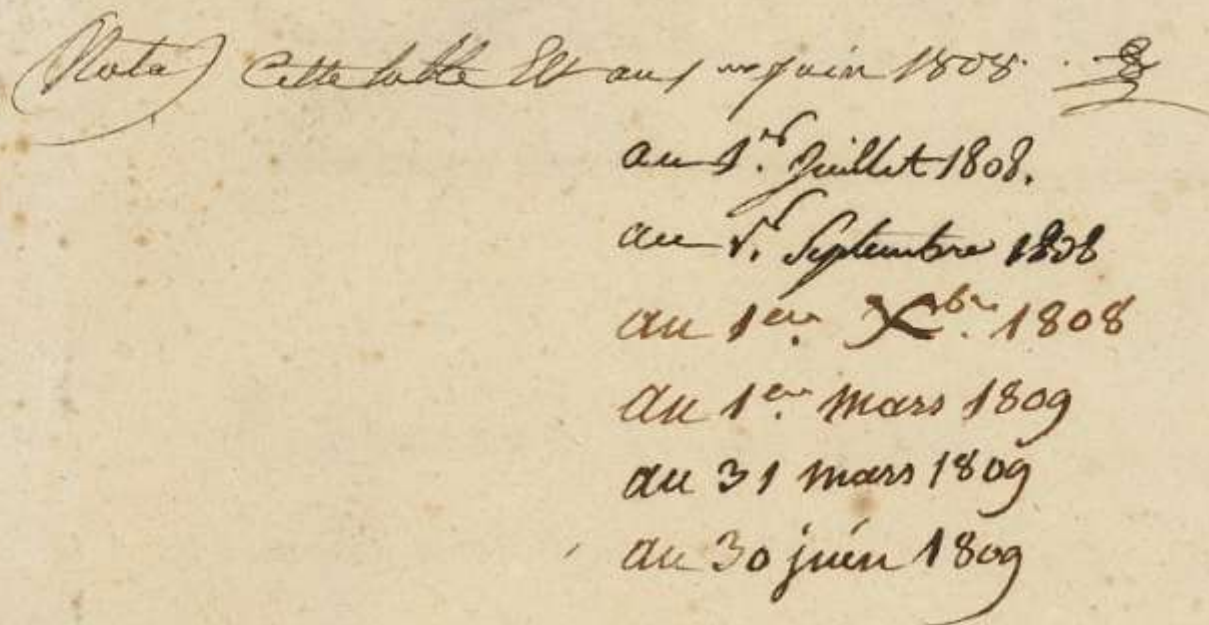 (Nota) Cette table Est au 1er juin 1808.
au 1er. Juillet 1808.
au 1er. Septembre 1808
au 1er. Xbre. 1808
au 1er. mars 1809
au 31 mars 1809
au 30 juin 1809